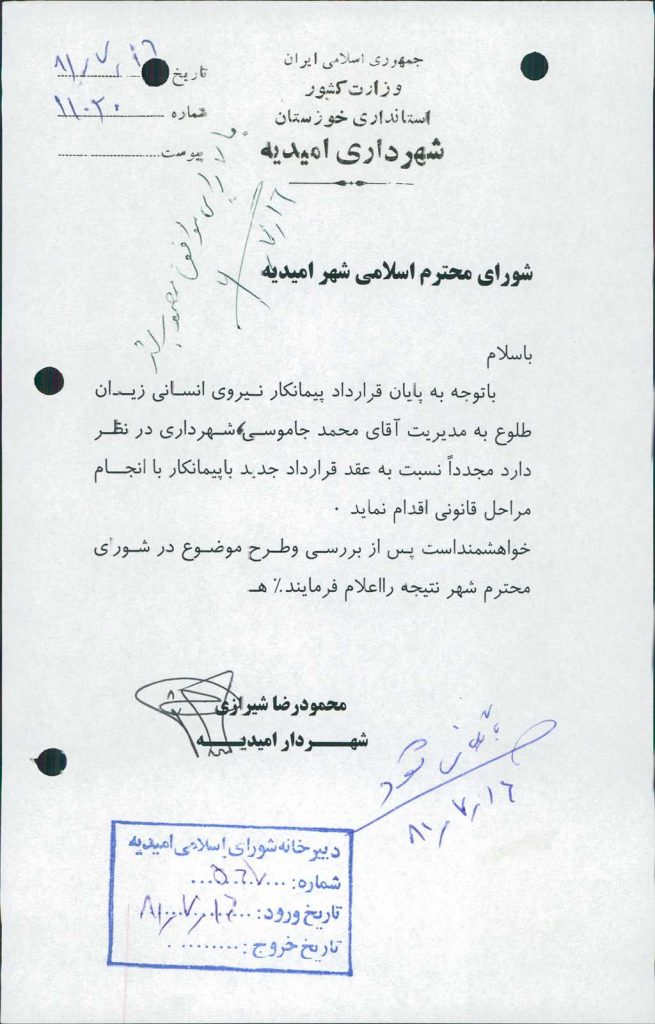 جمهوری اسلامی ایران
وزارت کشور
استانداری خوزستان
شهرداری امیدیه
تاریخ ۸۱٫۷٫۱۶
شماره ۱۱۰۲۰
پیوست
۷٫۱۶
شورای محترم اسلامی شهر امیدیه
باسلام
باتوجه به پایان قرارداد پیمانکار نیروی انسانی زیدان
طلوع به مدیریت آقای محمد جاموسی، شهرداری در نظر
دارد مجدداً نسبت به عقد قرارداد جدید باپیمانکار با انجام
مراحل قانونی اقدام نماید ۰
خواهشمنداست پس از بررسی وطرح موضوع در شورای
محترم شهر نتیجه رااعلام فرمایند٪ هـ
محمودرضا شیرازی
شهردار امیدیه
شود
۸۱٫۷٫۱۶
دبیرخانه شورای اسلامی امیدیه
شماره: ۵۶۷
تاریخ ورود: ۸۱٫۷٫۱۶
تاریخ خروج: